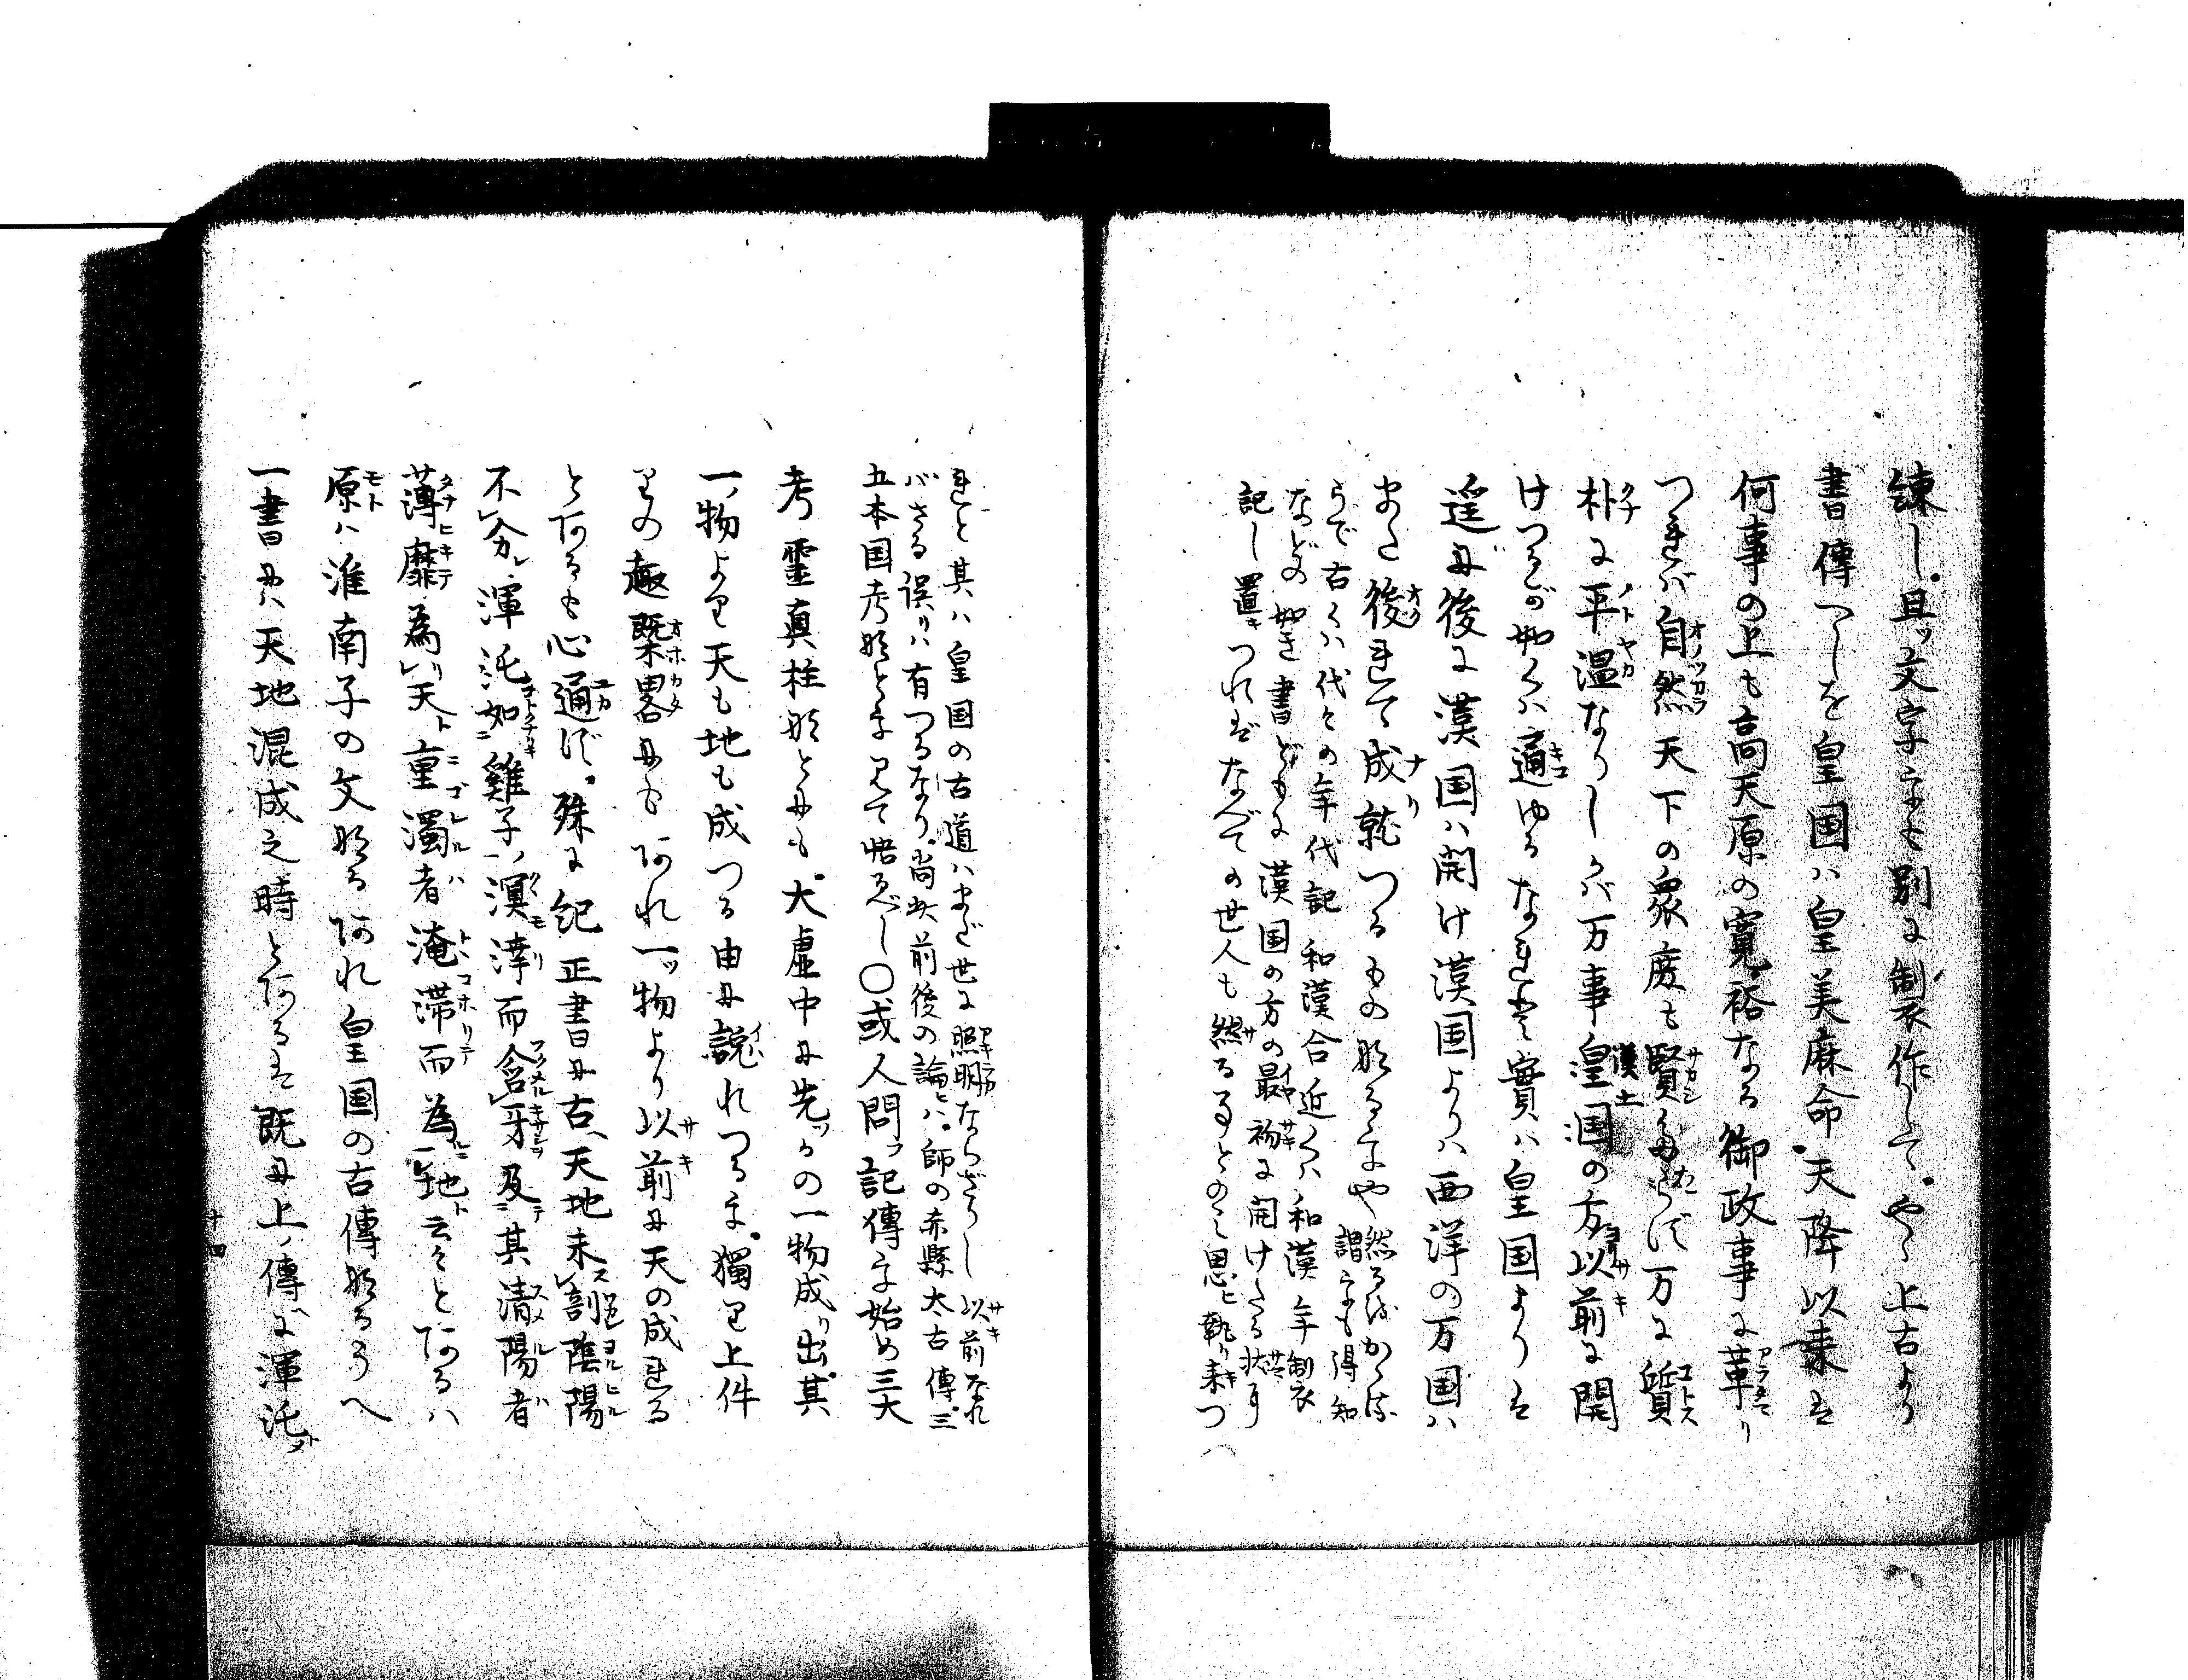 諫し且ッ文字さへも別に制作りて。やゝ上古より
書傳つしを皇国ハ皇美麻命。天降以来は
何事の上も高天原の寛裕なる御政事に革り
つれバ自然天下の衆庶も賢しからず万に質
朴に平温なりしかバ万事皇国の方以前に開
けつるが如くハ通ゆるなれど實ハ皇国よりは
遥に後に漢国ハ開け漢国よりハ西洋の万国ハ
また後れて成就つるもの也るをや 然るをかゝる謂さへも得知
らで古くハ代々の年代記和漢合近くハ和漢年制
などの如き書どもに漢国の方の最初に開けたる状に
記し置つれどなべての世人も然ることのミ思ヒ執り来つ
れと其ハ皇国の古道ハまだ世に照明ならざりし以前なれ
バさる誤りハ有つるなり。尚此前後の論ヒハ。師の赤縣太古傳。三
五本国考などを見て悟るべし〇或人問フ記傳を始め三大
考霊真柱などにも。大虚中に先ッかの一物成り出。其
一ッ物より天も地も成つる由に説れつるを。獨り上件
りの趣概畧にもあれ一ッ物より以前に天の成れる
とあるも心通ず。殊に紀正書に古、天地未割陰陽
不分。渾沌如雞子、溟涬而含牙及其清陽者
薄靡為天重濁者淹滞而為地云々とあるハ
原ハ淮南子の文なるあれ皇国の古傳なるうへ
一書にハ天地混成之時とあるは既に上ッ傳に渾沌
十四